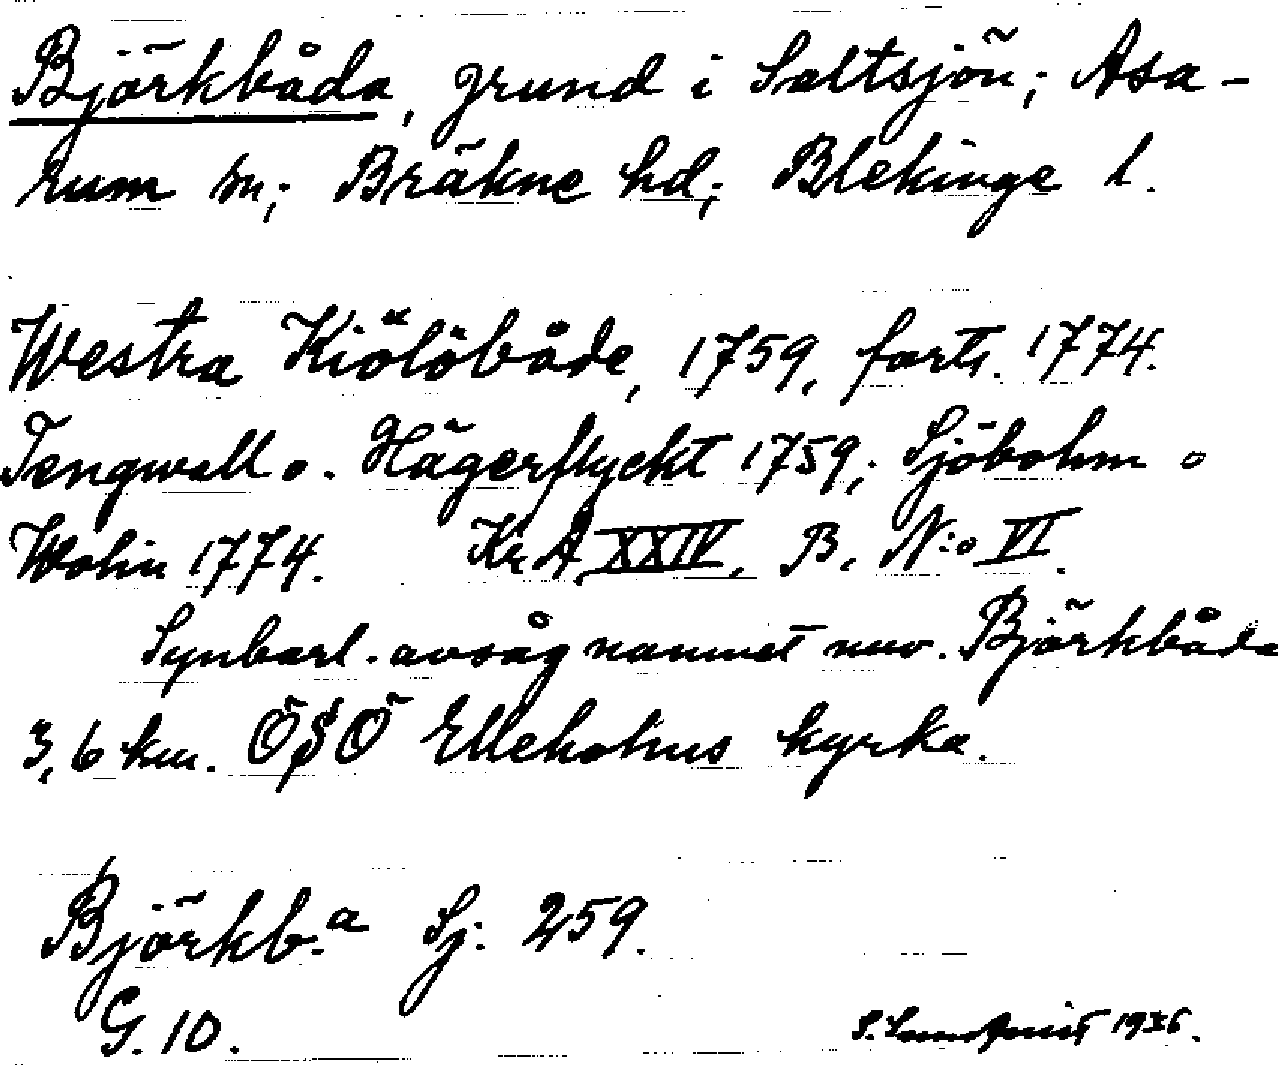 Björkbåda, grund i Saltsjön; Asa-
rum sn; Bräkne hd; Blekinge l.
Westra Kiölöbåde, 1759, forts. 1774.
Tengwall o. Hägerflyckt 1759; Sjöbohm o
Wolin 1774. Kr A XXIV, B, N:o VI.
Synbarl. avsåg namnet nuv. Björkbåda
3,6 km. ÖSÖ Elleholms kyrka.
Björkb:a Sj. 259.
G. 10.
S. 1936.